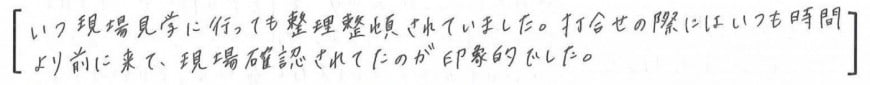 いつ現場見学に行っても整理整頓されていました。打合せの際にはいつも時間
より前に来て、現場確認されてたのが印象的でした。